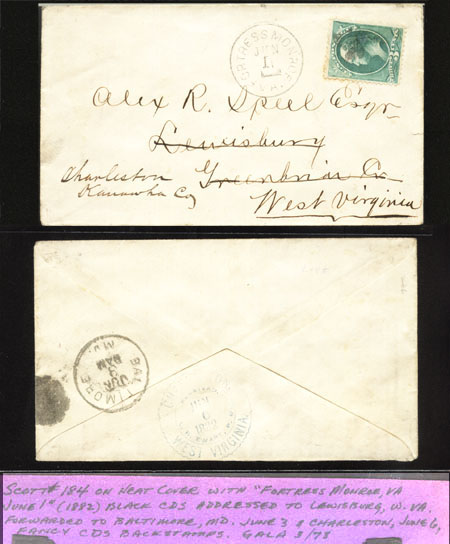 FORTRESS MONROE
JUN
1
VA.
Alex R. Speel Esqr
Lewisburg
Charleston
Greenbriar Co
Kanawha Co
West Virginia
BALTIMORE
JUN
3
8AM
MD.
JUN
6
1882
WEST VIRGINIA.
SCOTT# 184 ON NEAT COVER WITH "FORTRESS MONROE, VA
JUNE 1" (1882) BLACK CDS ADDRESSED TO LEWISBURG, W. VA.
FORWARDED TO BALTIMORE, MD. JUNE 3 & CHARLESTON, JUNE 6,
FANCY CDS BACKSTAMPS. GALA 3/73